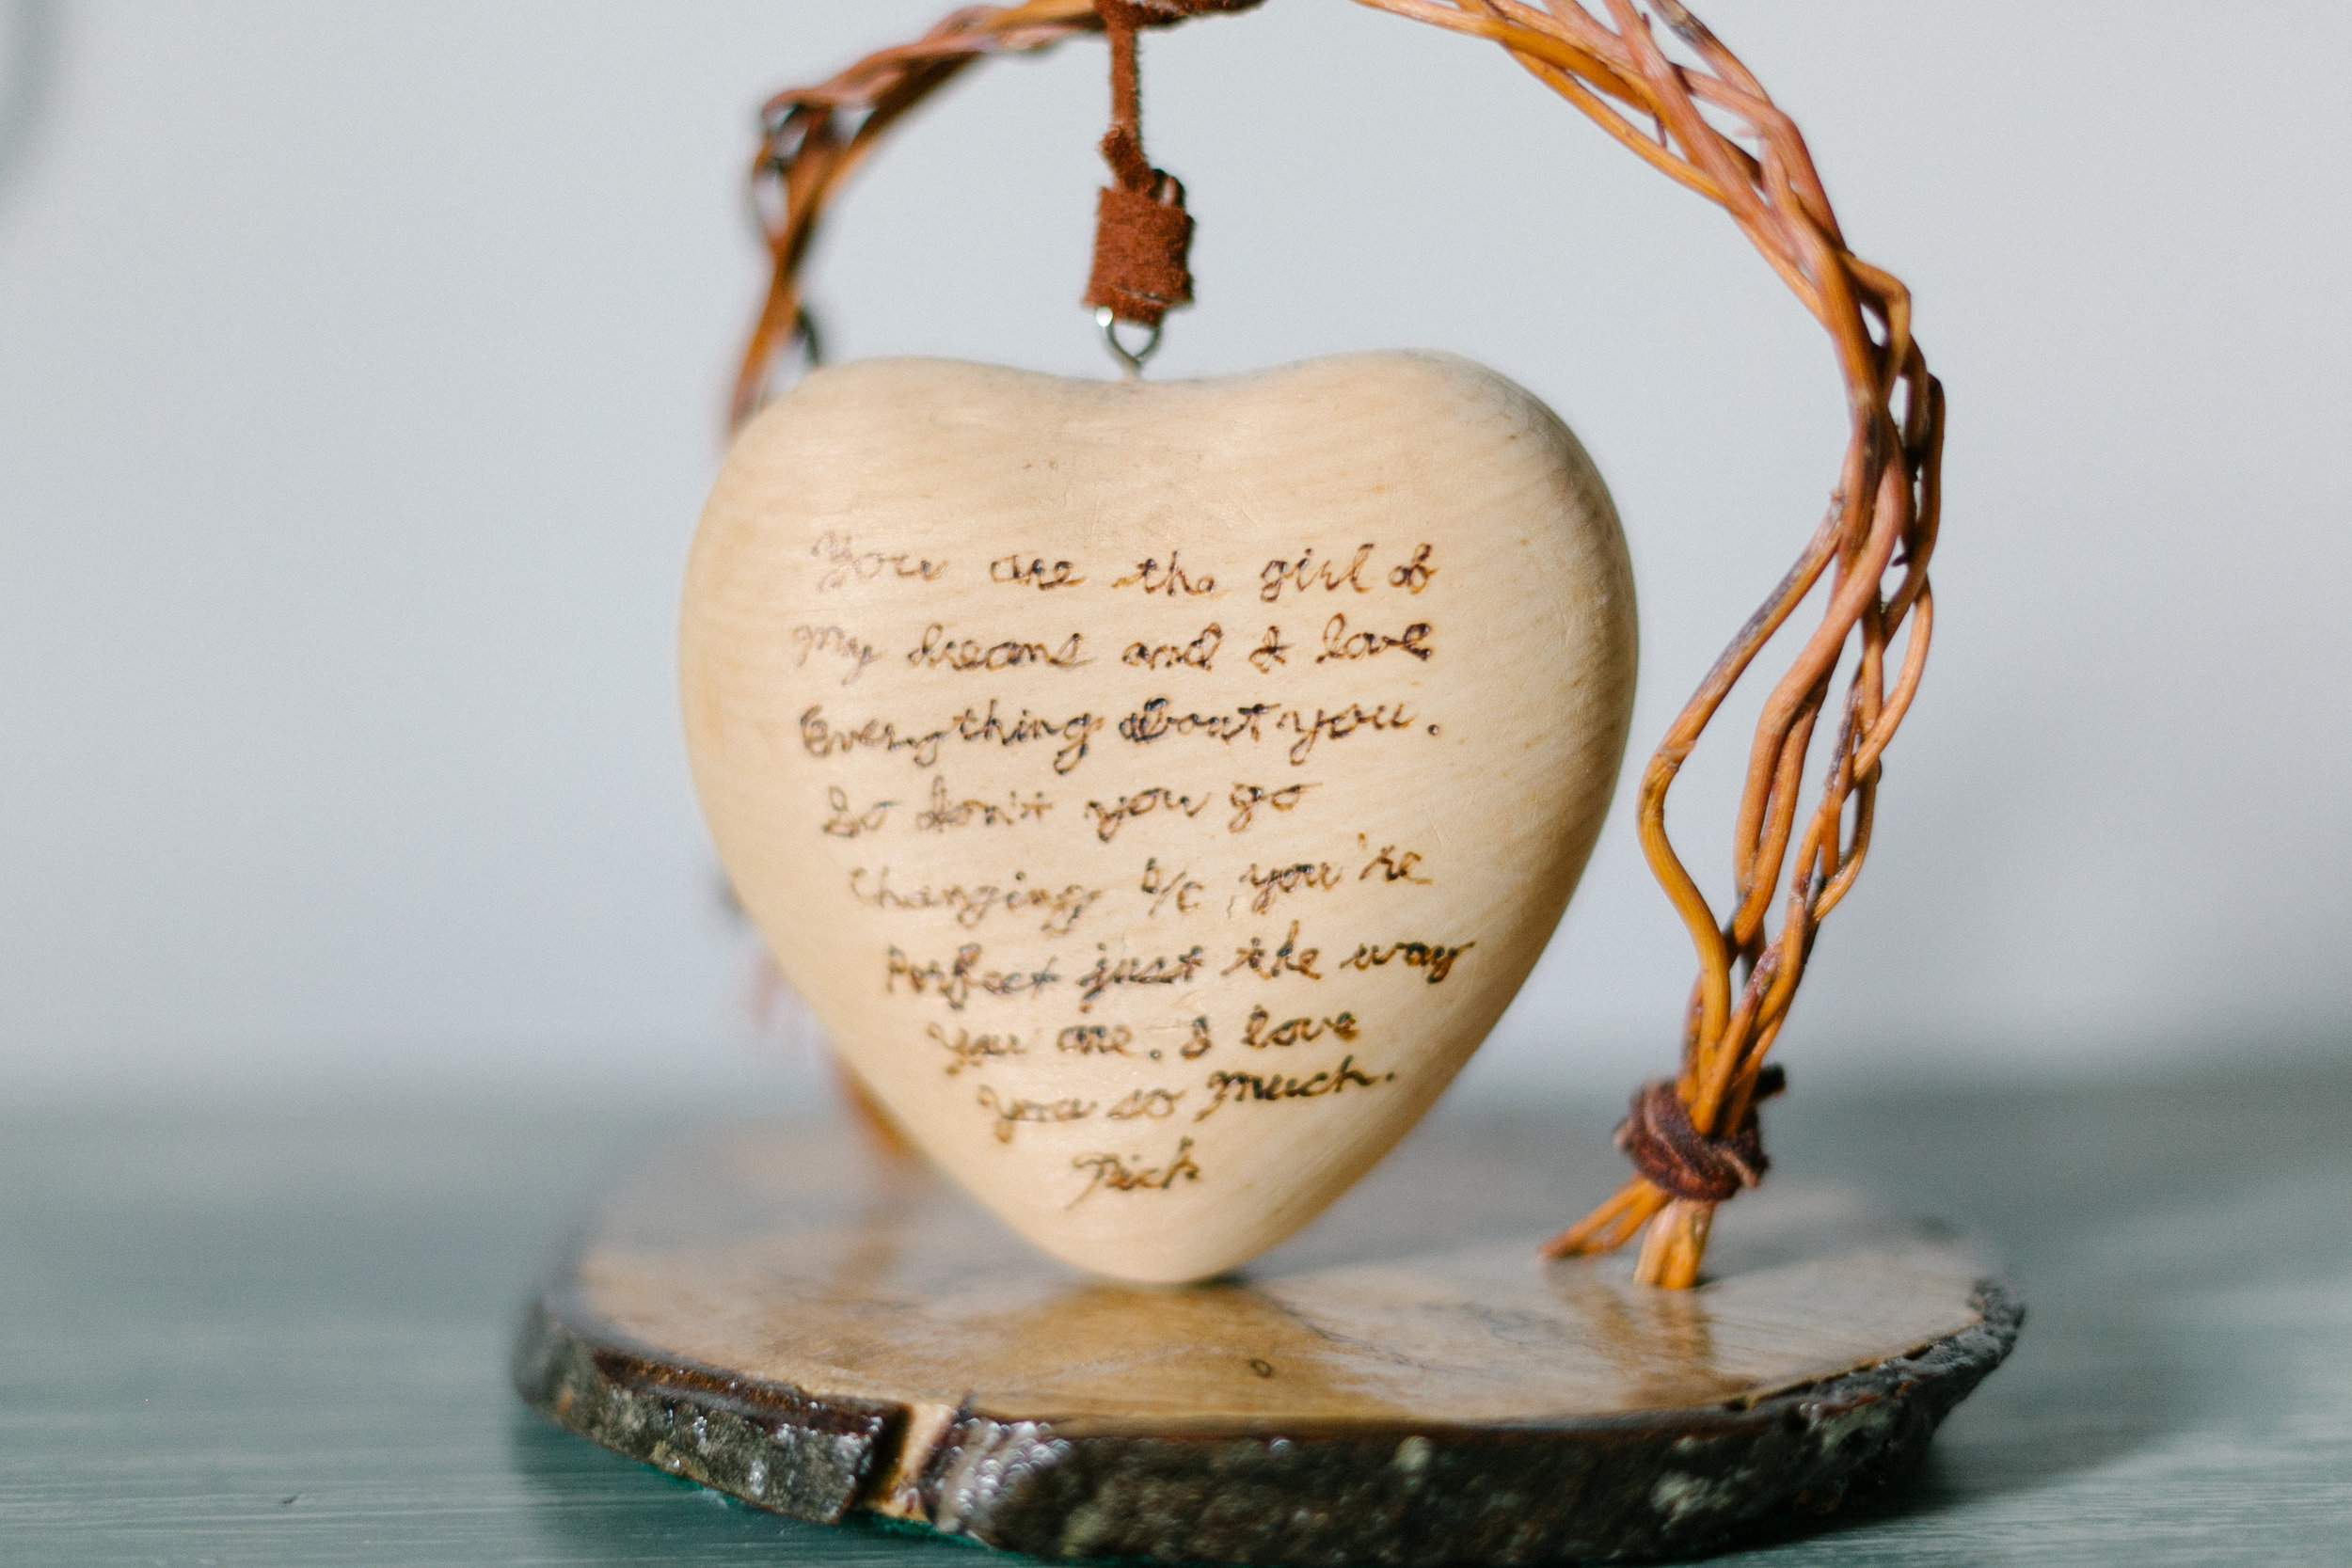 You are the girl of
My dreams and I love
Everything about you.
So don't you go
Changing b/c you're
Perfect just the way
You are. I love
You so much.
Rich